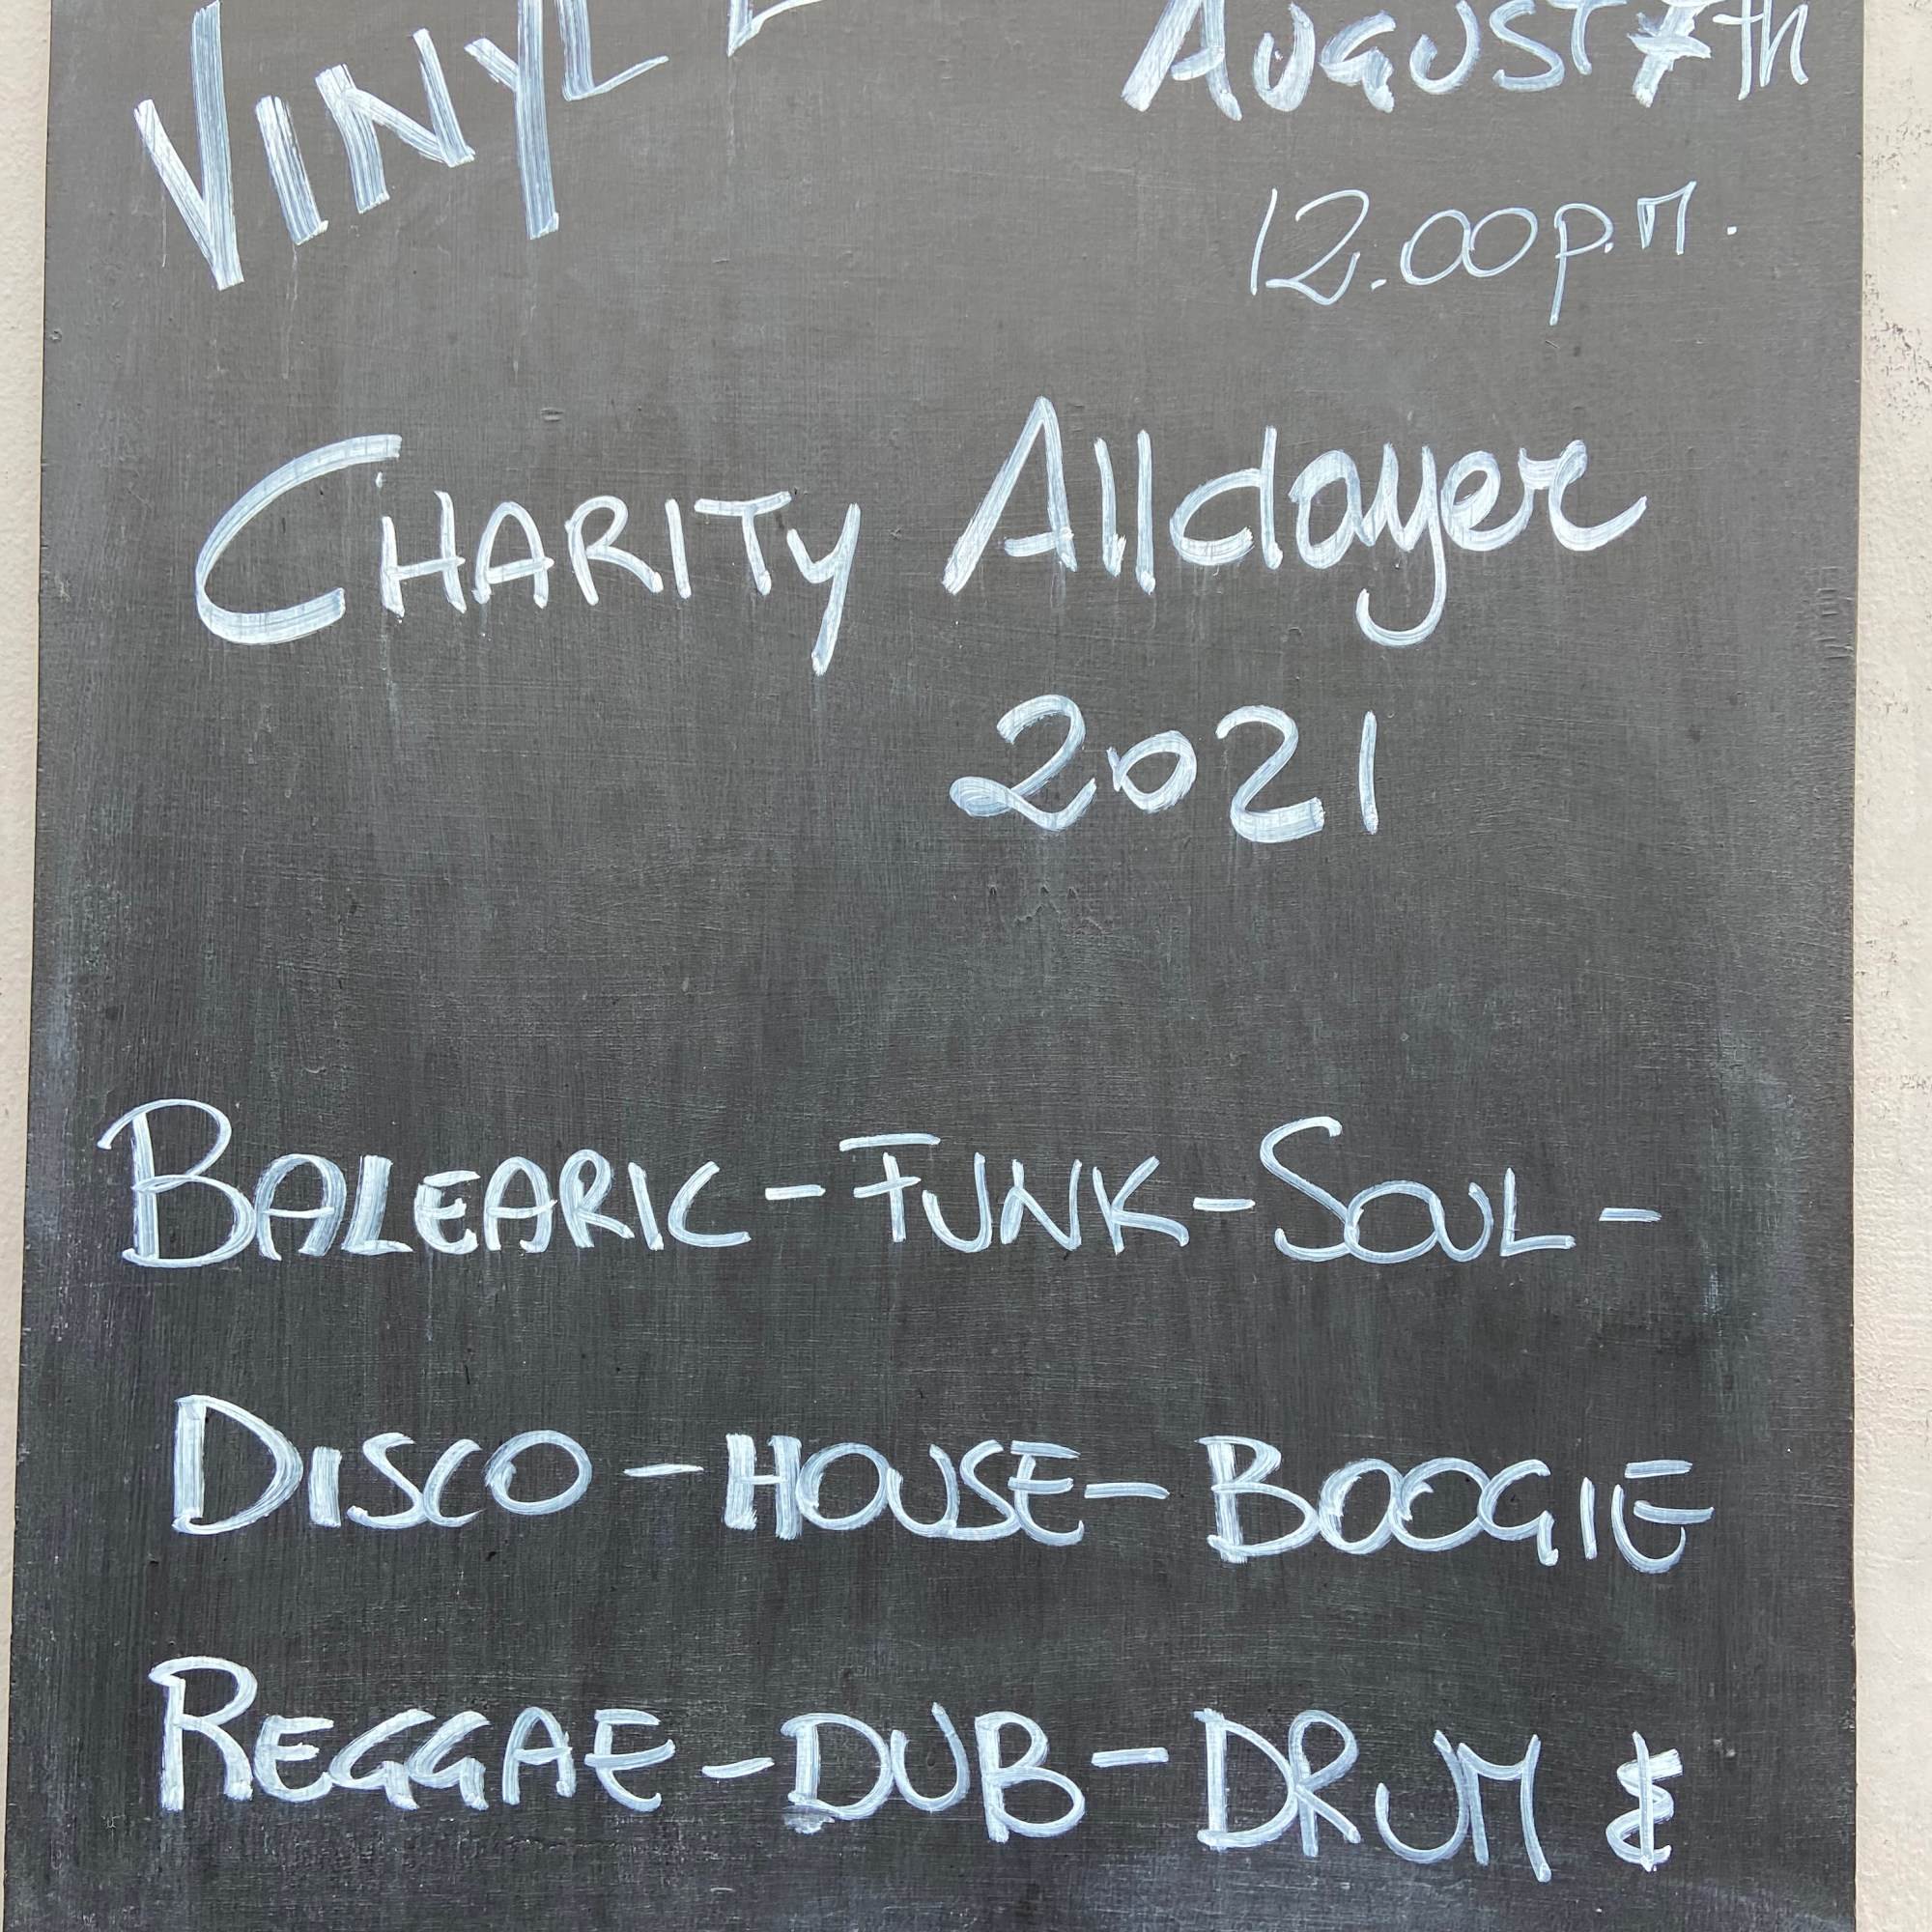 VINYL
AUGUST 7th
12.00 p.m.
CHARITY Alldayer
2021
BALEARIC - FUNK - SOUL -
DISCO - HOUSE - BOOGIE
REGGAE - DUB - DRUM &